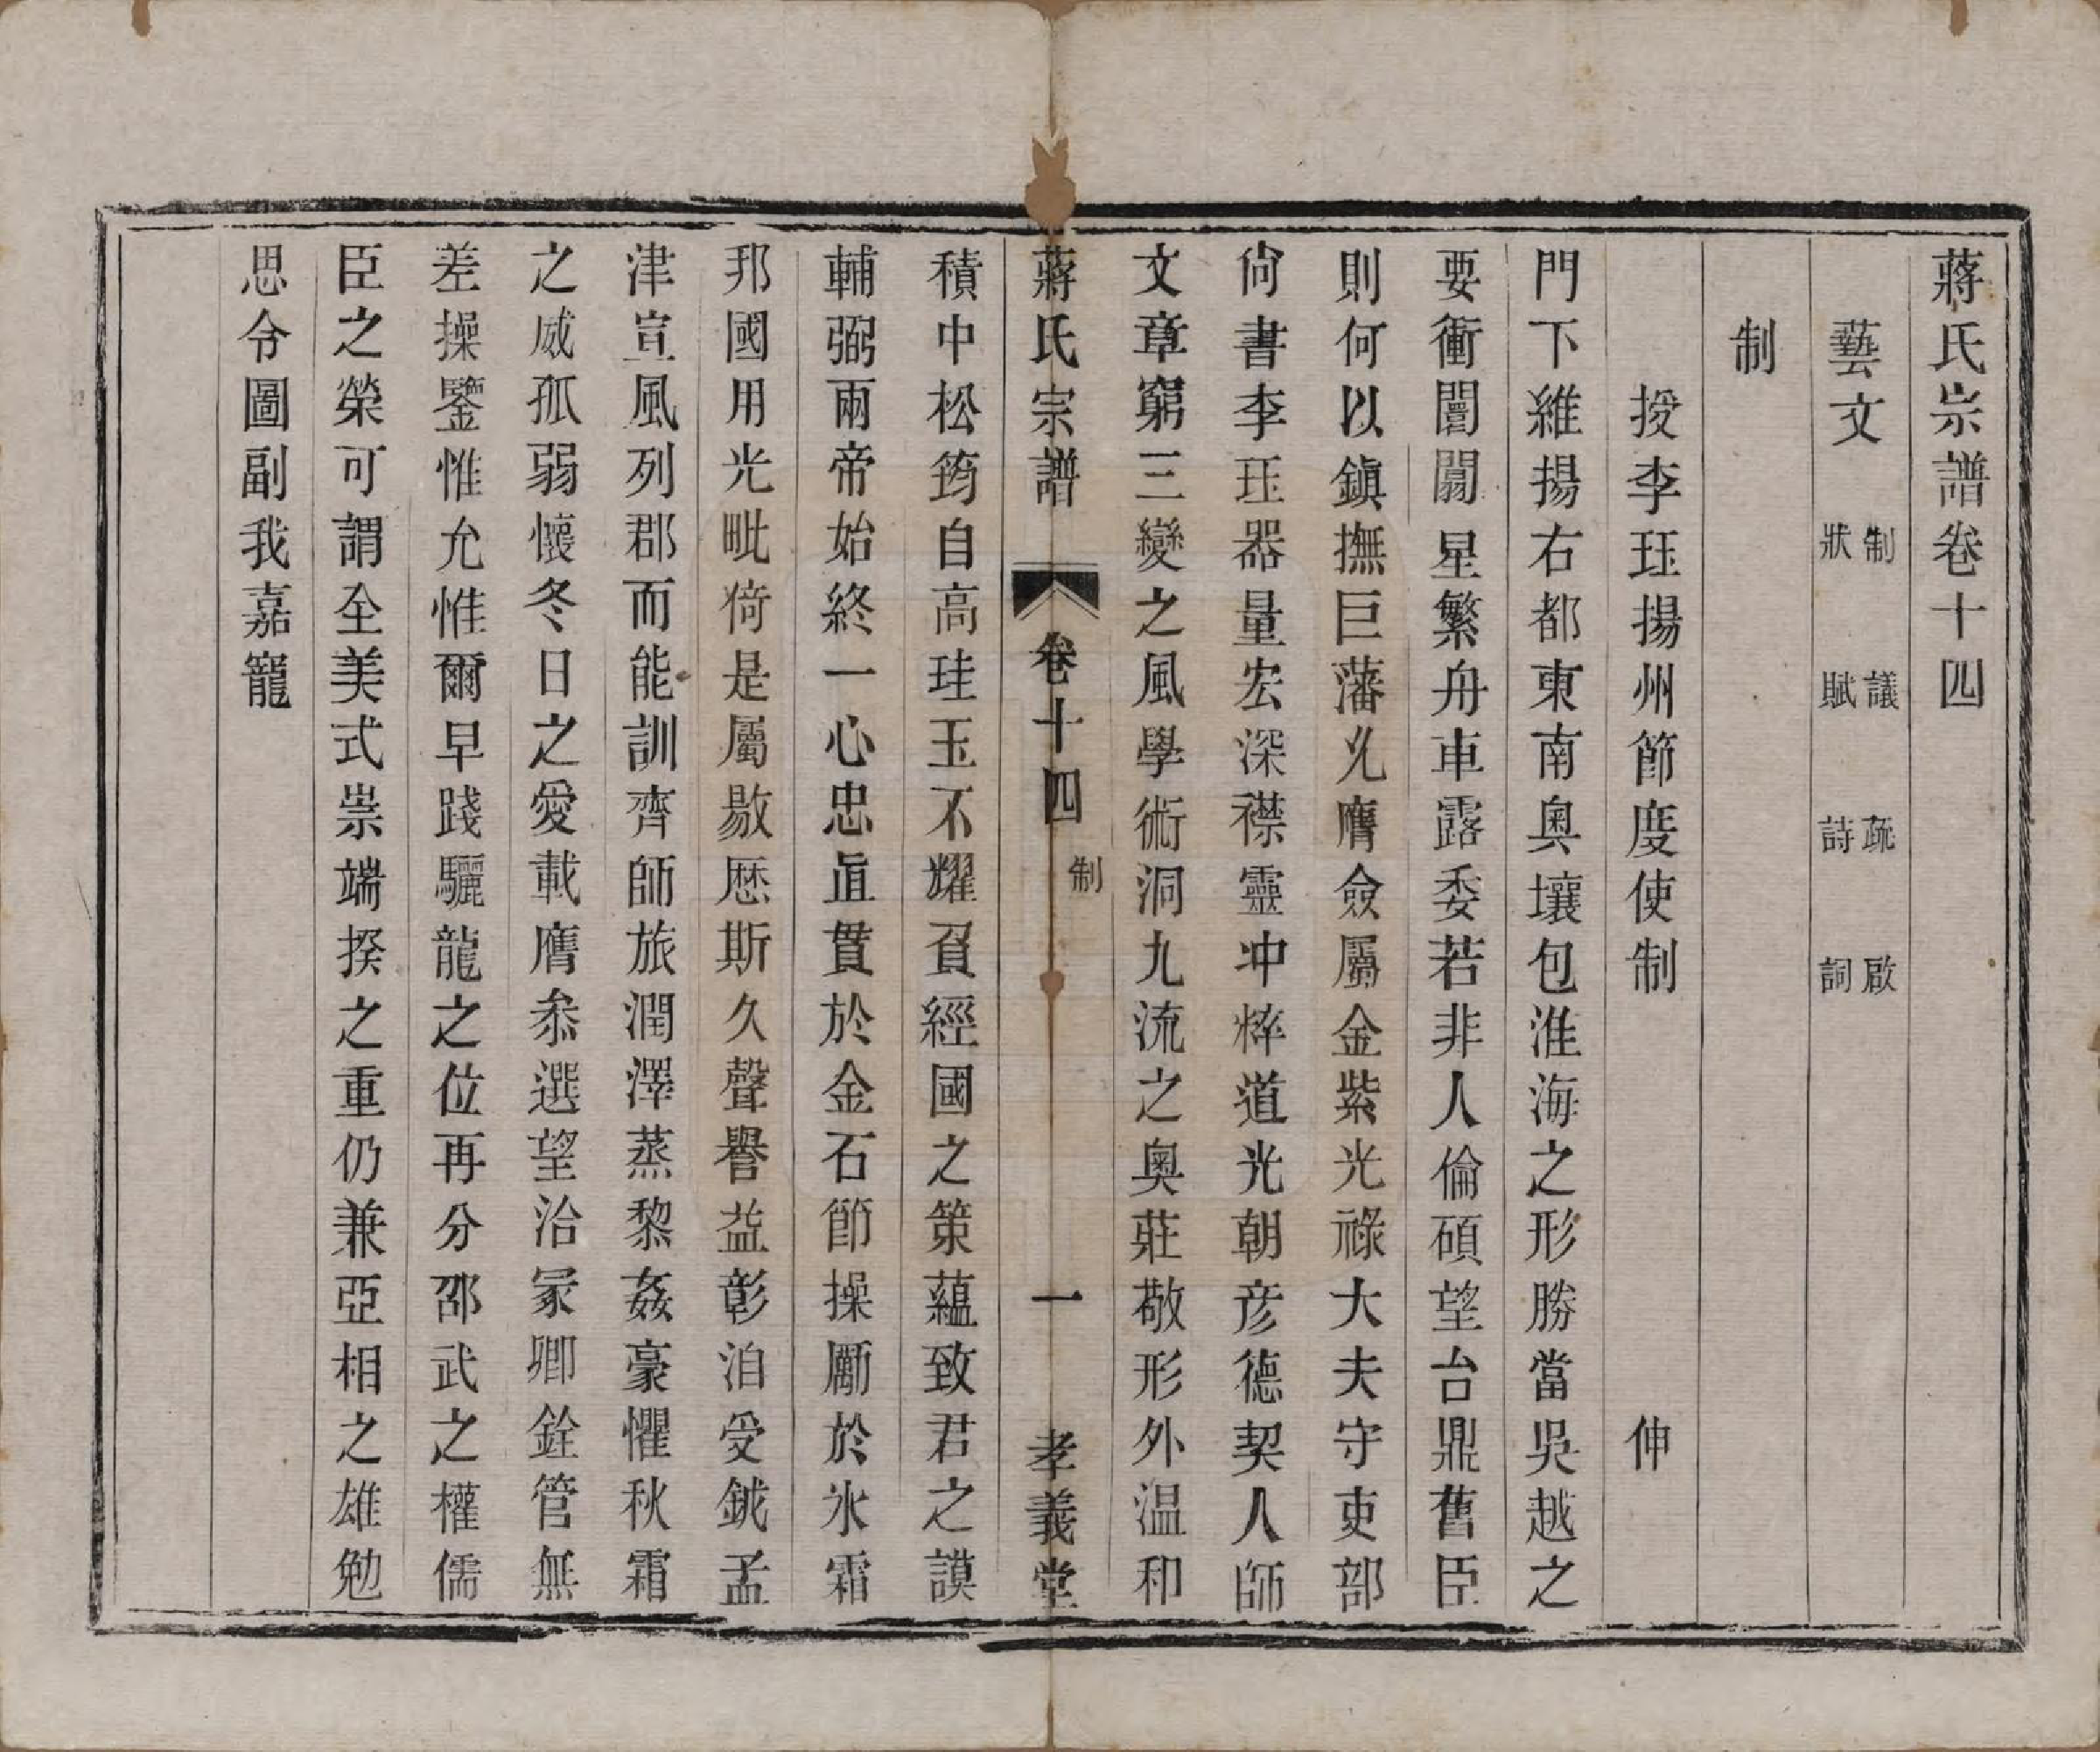 蔣氏宗譜卷十四
藝文 制 議 疏 啟 狀 賦 詩 詞
制
授李珏揚州節度使制 伸
門下維揚右都東南奧壤包淮海之形勝當吳越之
要衝闤闠星繁舟車露委若非人倫碩望台鼎舊臣
則何以鎮撫巨藩允膺僉屬金紫光祿大夫守吏部
尙書李珏器量宏深襟靈冲粹道光朝彦德契人師
文章窮三變之風學術洞九流之奧莊敬形外温和
蔣氏宗譜 卷十四 制 一 孝義堂
積中松筠自高珪玉不耀負經國之策蘊致君之謨
輔弼兩帝始終一心忠直貫於金石節操厲於氷霜
邦國用光毗倚是屬敭歷斯久聲譽益彰洎受鉞孟
津宣風列郡而能訓齊師旅潤澤蒸黎姦豪懼秋霜
之威孤弱懷冬日之愛載膺叅選望洽冢卿銓管無
差操鑒惟允惟爾早踐驪龍之位再分邵武之權儒
臣之榮可謂全美式崇端揆之重仍兼亞相之雄勉
思令圖副我嘉寵